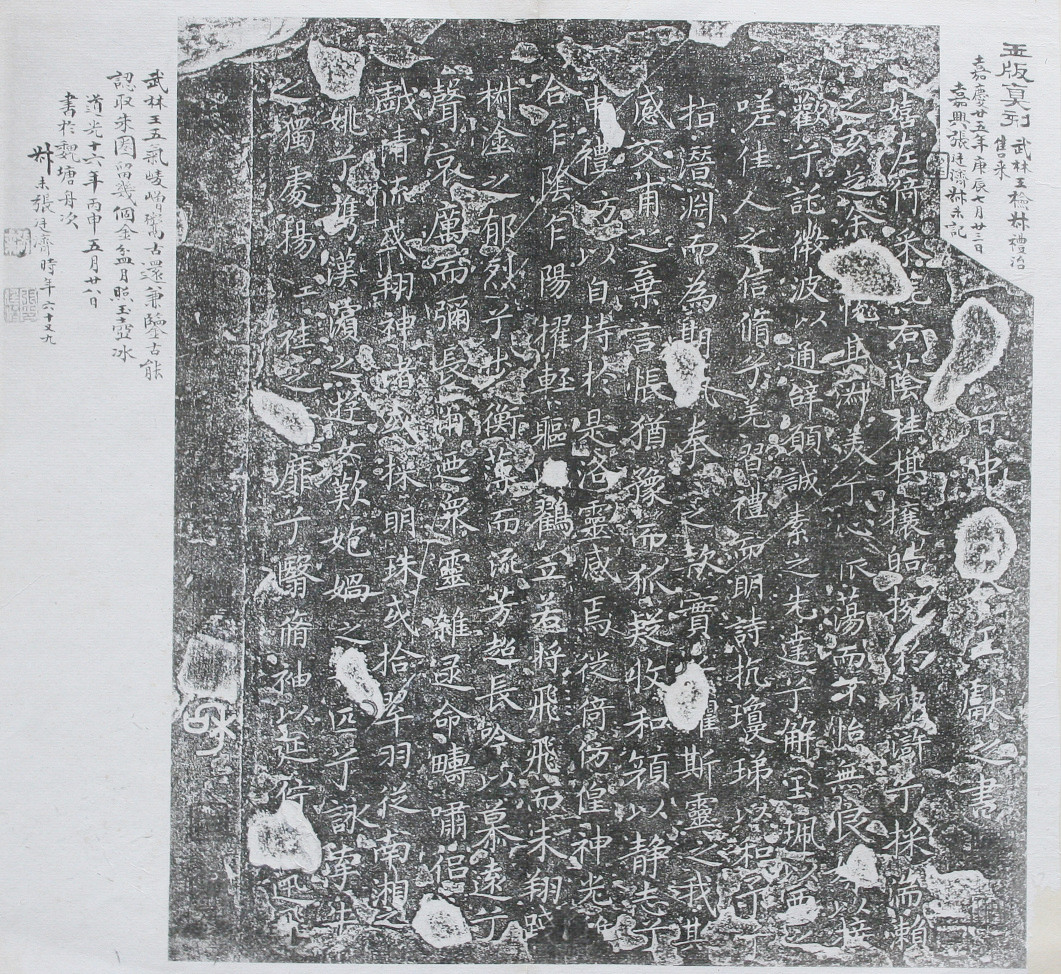 玉版真本 武林王檢叔禮治
售来
嘉慶廿五年庚辰七月廿三日
嘉興張廷濟叔未記
晉中 令王獻之書
嬉左倚采旄右蔭桂旗攘皓捥於神滸兮採湍瀨
之玄芝余 悅其淑美兮心振蕩而不怡無良媒以接
歡兮託微波以通辭願誠素之先達兮解玉珮以要之
嗟佳人之信脩兮羌習禮而明詩抗瓊珶以和予兮
指潛淵而為期執拳之款實 懼斯靈之我其
感交甫之棄言悵猶豫而狐疑收和顏以静志兮
申禮方以自持於是洛靈感焉徙倚仿偟神光
合乍陰乍陽擢輕軀 鶴立若將飛飛而未翔踐
椒塗之郁烈兮步衡薄而流芳超長吟以慕遠兮
聲哀厲而彌長爾迺衆靈雜遝命疇嘯侣
戲清流或翔神渚或採明珠或拾翠羽從南湘之
姚兮攜漢濱之遊女歎匏媧之 匹兮詠牽牛
之獨處揚 袿之 靡兮翳脩袖以延佇 迅
武林王五氣崚嶒 古還兼鑒古能
認取朱圓留幾個金盆月照玉壺冰
道光十六年丙申五月廿六日
書於魏塘舟次
叔未張廷濟時年六十九